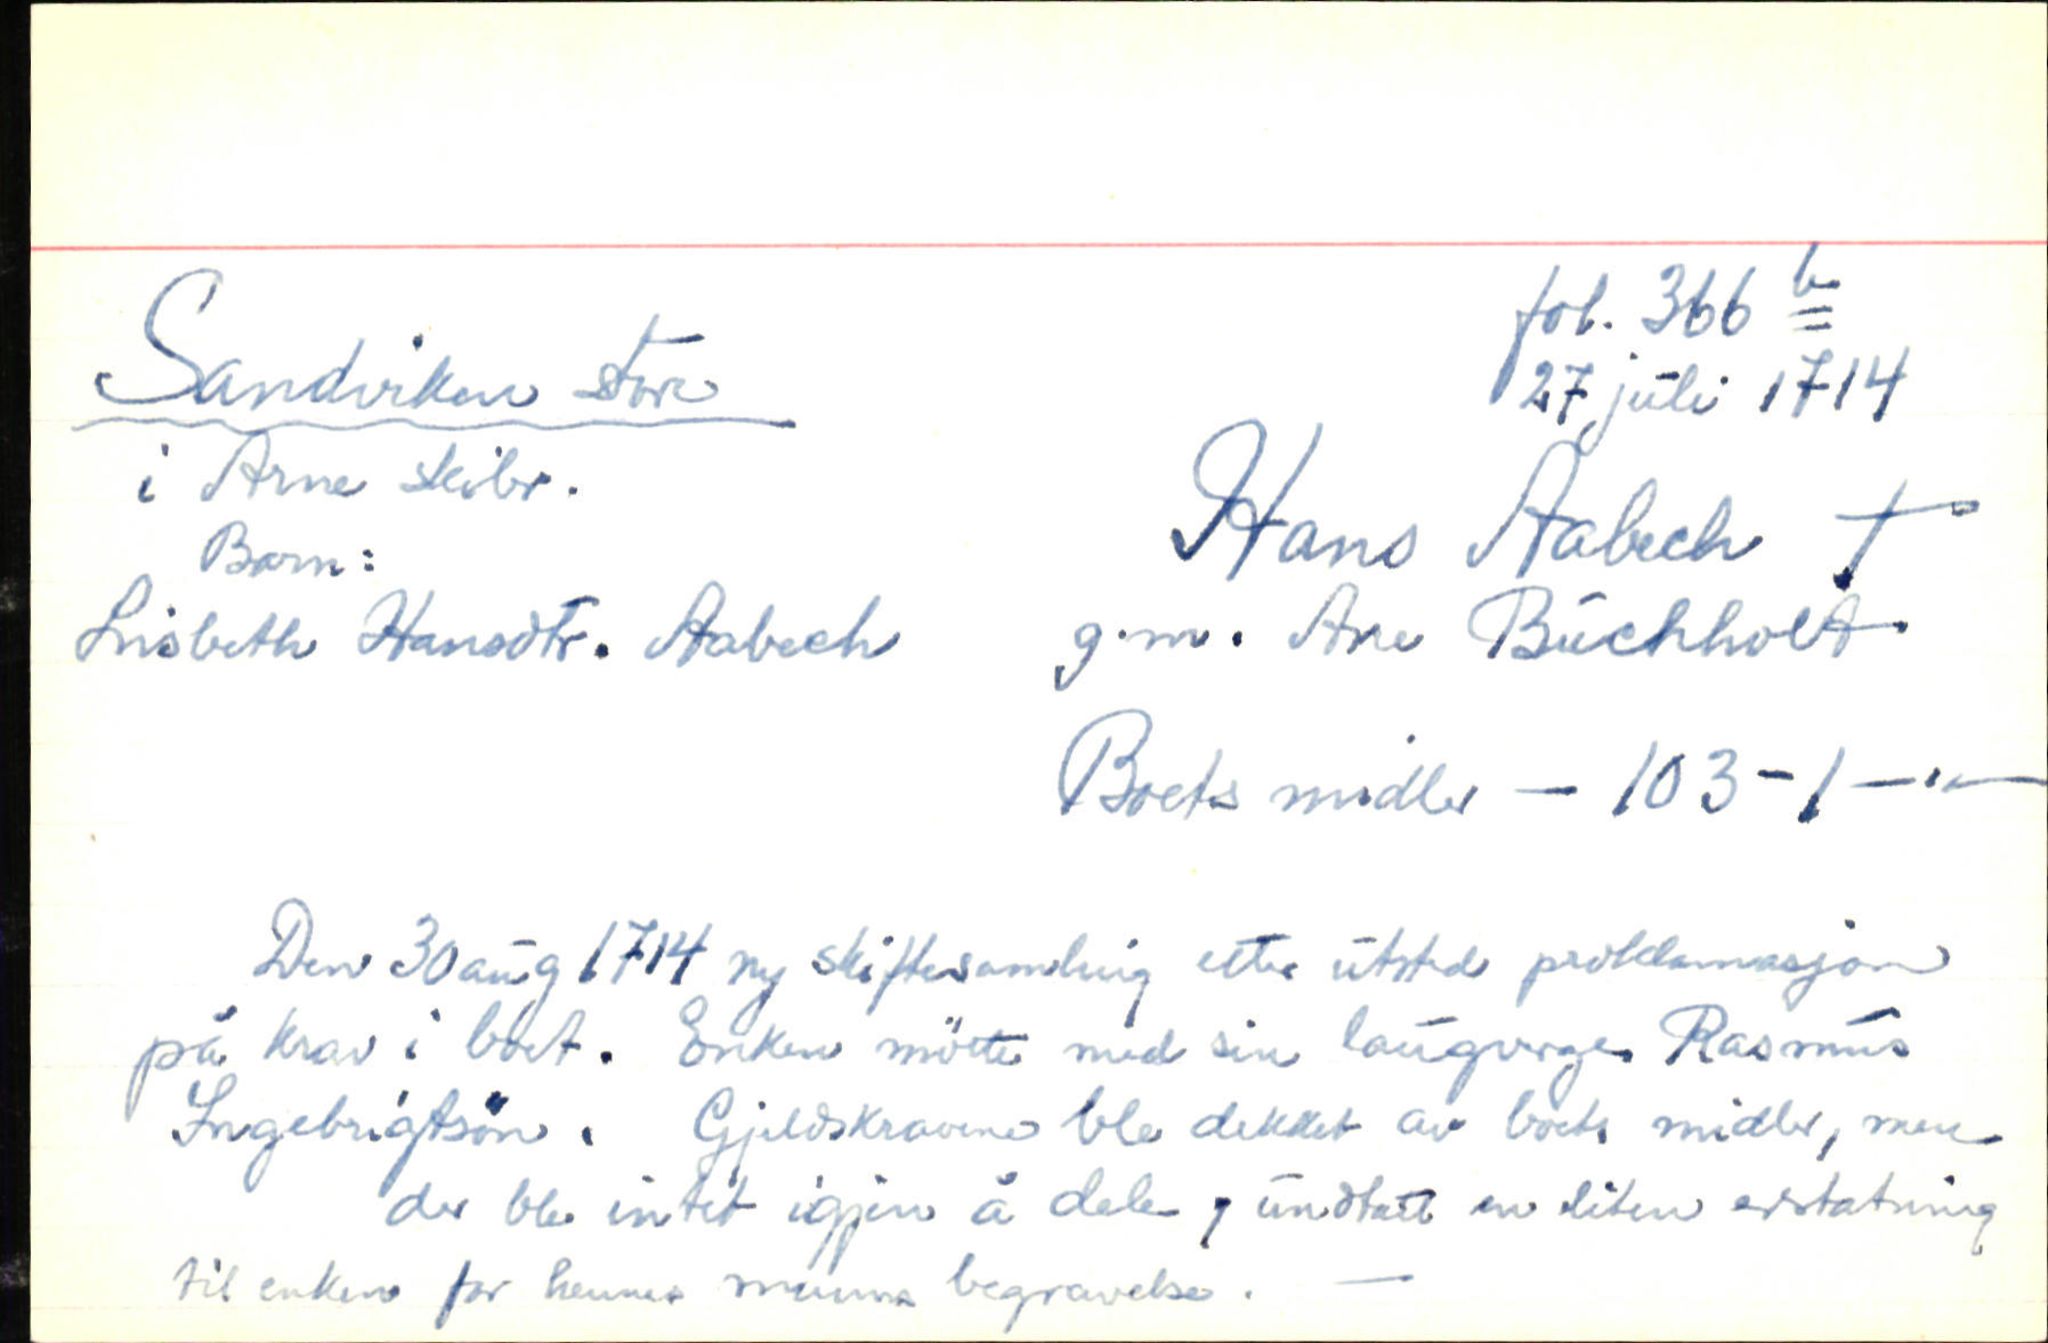 fol. 366 b
27 juli 1714
Sandviken store
i Arne skibr.
Barn:
Lisbeth Hansdtr. Aabech
Hans Aabech †
g.m. Ane Buchholt.
Boets midler — 103 - 1 — " —
Den 30 aug 1714 ny skiftesamling etter utsted proklamasjon
på krav i boet. Enken mötte med sin laugverge Rasmus
Ingebrigtsön. Gjeldskravene ble dekket av boets midler, men
der ble intet igjen å dele, undtatt en liten erstatning
til enken for hennes manns begravelse. —